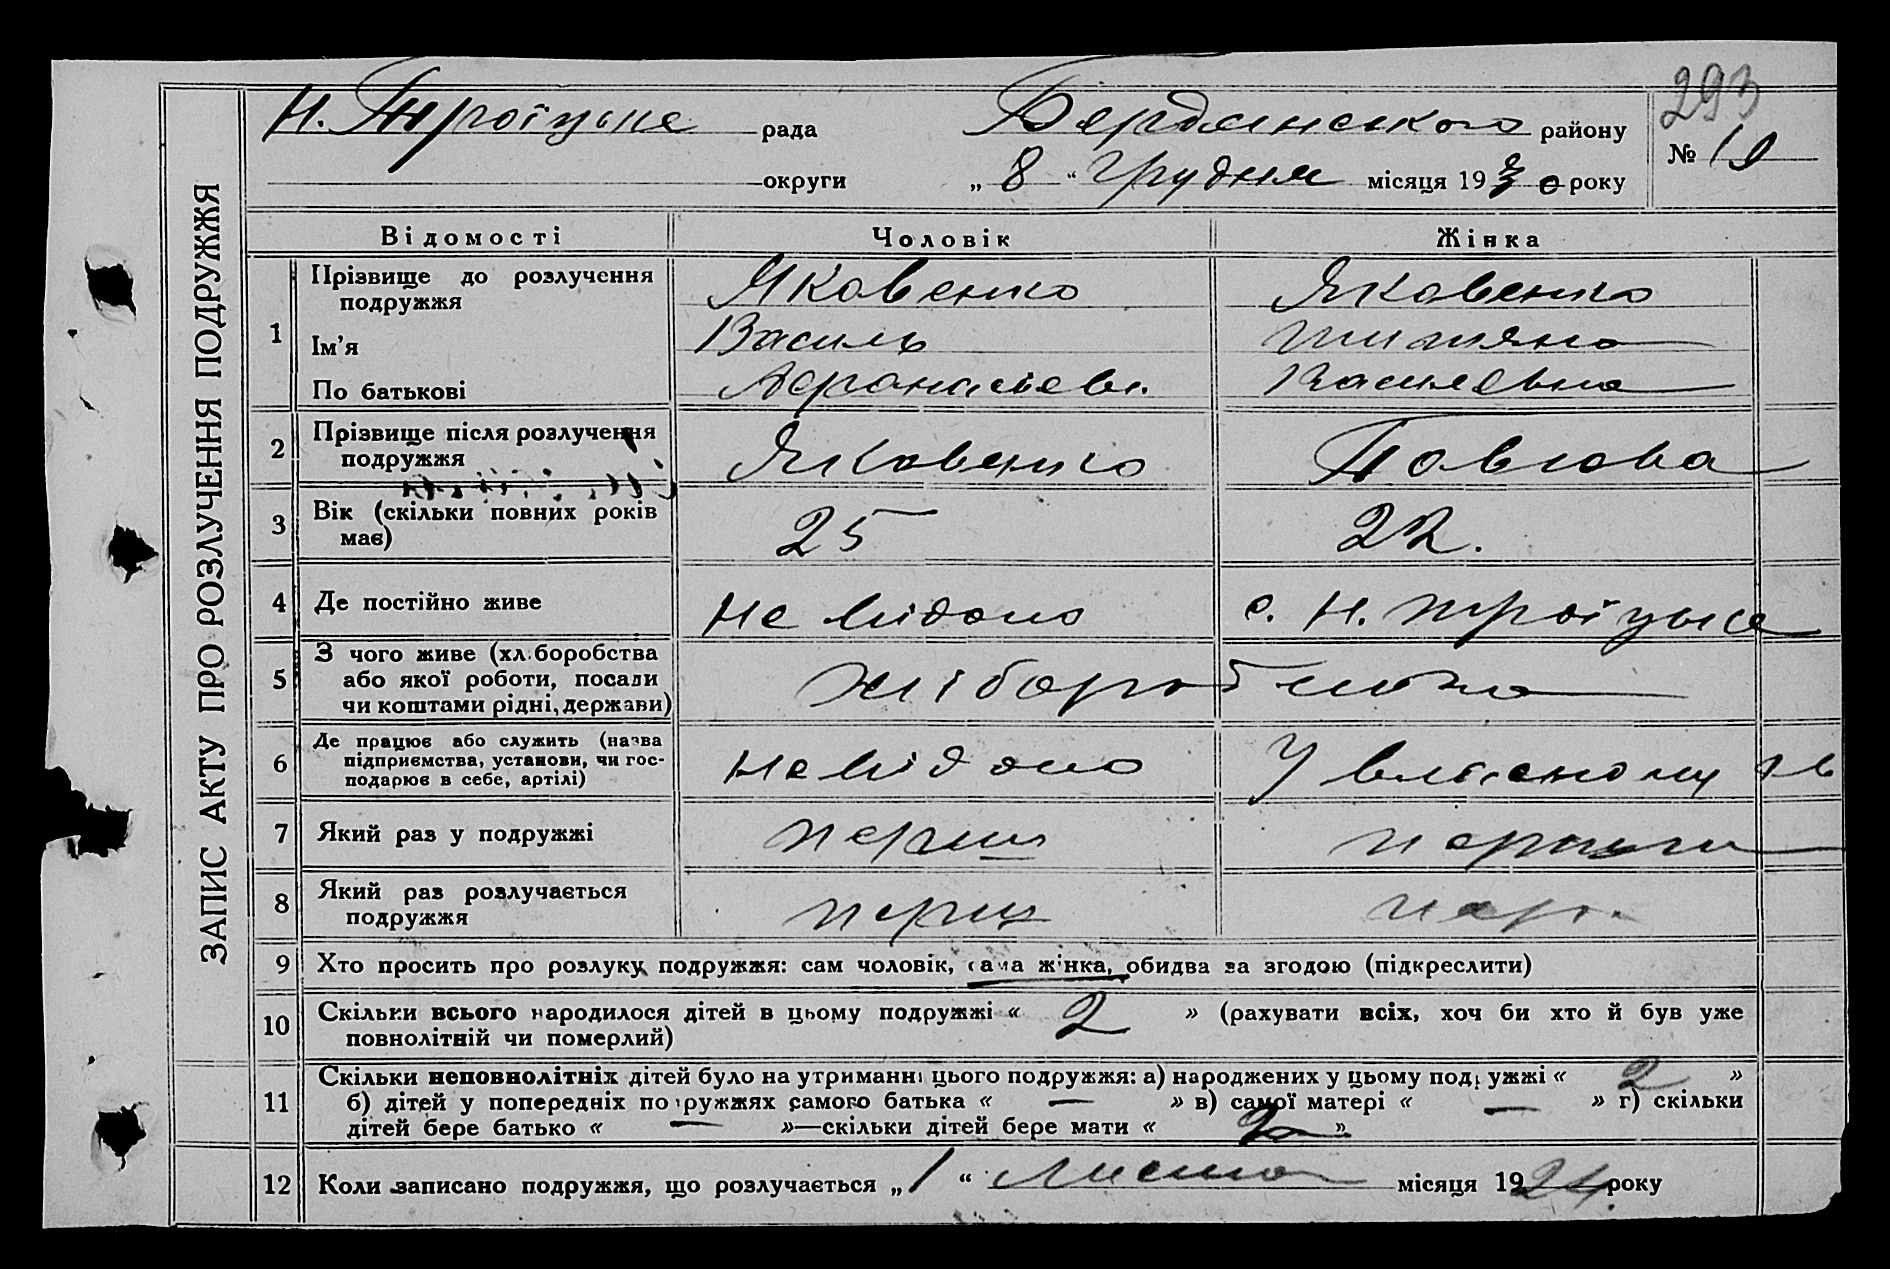 293
Н. Троїцьке рада Бердянського району
№ 19
округи „ 8 “ Грудня місяця 1930 року
ЗАПИС АКТУ ПРО РОЗЛУЧЕННЯ ПОДРУЖЖЯ
Відомості Чоловік Жінка
1 Прізвище до розлучення подружжя Яковенко Яковенко
Ім’я Василь Титяна
По батькові Афанасієв. Василевна
2 Прізвище після розлучення подружжя Яковенко Павлова
3 Вік (скільки повних років має) 25 22.
4 Де постійно живе не відомо с. Н. Троїцьке
5 З чого живе (хл.боробства або якої роботи, посади чи коштами рідні, держави) хліборобство
6 Де працює або служить (назва підприємства, установи, чи господарює в себе, артілі) невідомо У власному
7 Який раз у подружжі перш перший
8 Який раз розлучається подружжя перш пер.
9 Хто просить про розлуку подружжя: сам чоловік, сама жінка, обидва за згодою (підкреслити)
10 Скільки всього народилося дітей в цьому подружжі « 2 » (рахувати всіх, хоч би хто й був уже
повнолітній чи померлий)
11 Скільки неповнолітніх дітей було на утриманні цього подружжя: а) народжених у цьому подружжі « 2 »
б) дітей у попередніх подружжях самого батька « — » в) самої матері « — » г) скільки
дітей бере батько « — »—скільки дітей бере мати « 2 »
12 Коли записано подружжя, що розлучається „ 1 “ місяця 1924 року